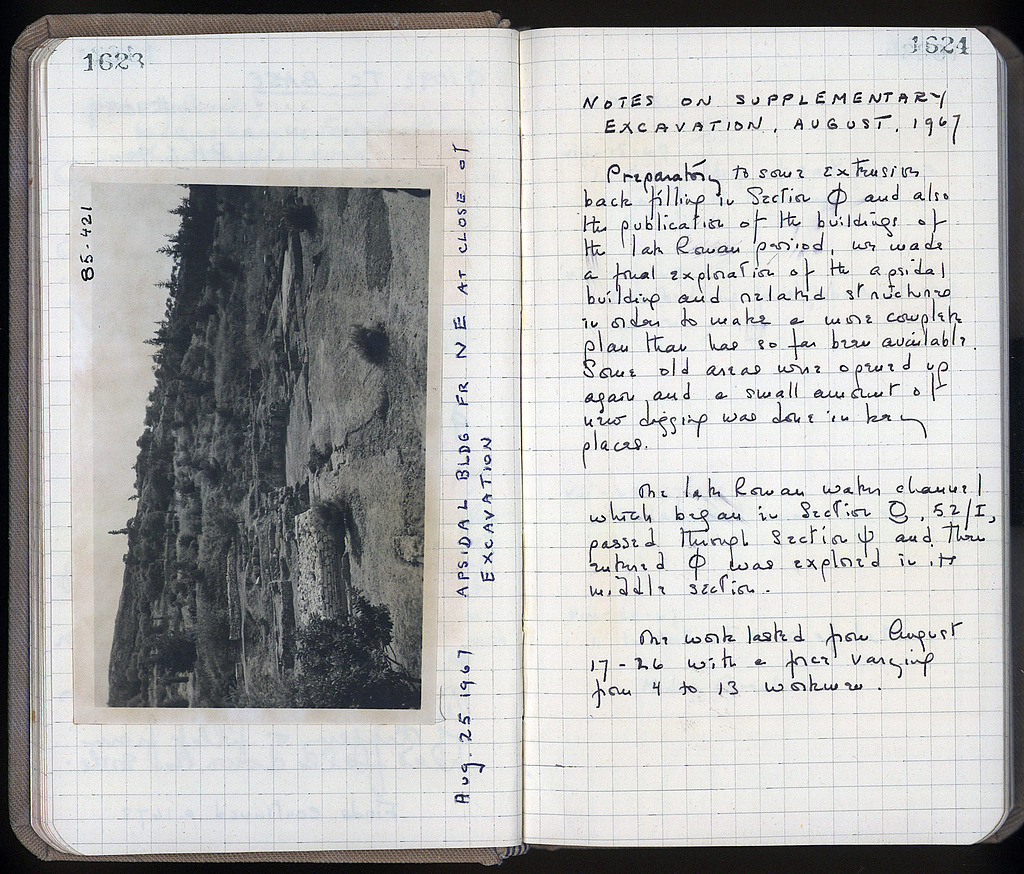 1623
85-421
Aug. 25 1967 APSIDAL BLDG. FR NE AT CLOSE OF
EXCAVATION
1624
NOTES ON SUPPLEMENTARY
EXCAVATION, AUGUST, 1967
Preparatory to some extensive
back filling in Section Φ and also
the publication of the buildings of
the late Roman period, we made
a final exploration of the apsidal
building and related structures
in order to make a more complete
plan than has so far been available.
Some old areas were opened up
again and a small amount of
new digging was done in key
places.
The late Roman water channel
which began in Section 52/I,
passed through Section Ψ and then
entered Φ was explored in its
middle section.
The work lasted from August
17-26 with a force varying
from 4 to 13 workmen.